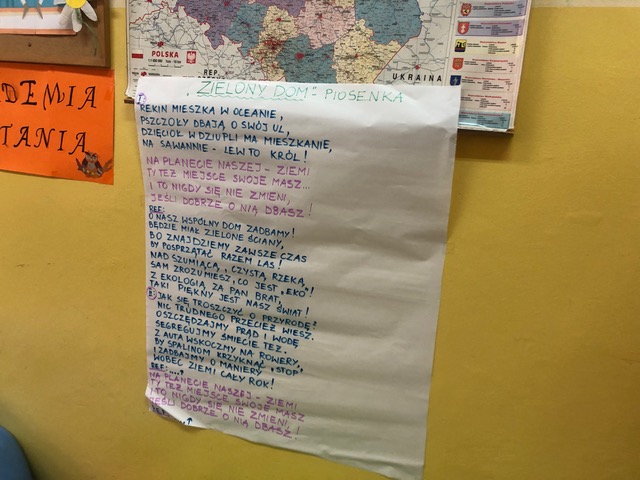 POLSKA
REP.
UKRAINA
DEMIA
TANIA
"ZIELONY DOM" - PIOSENKA
REKIN MIESZKA W OCEANIE,
PSZCZOŁY DBAJĄ O SWÓJ UL,
DZIĘCIOŁ W DZIUPLI MA MIESZKANIE,
NA SAWANNIE - LEW TO KRÓL!
NA PLANECIE NASZEJ - ZIEMI
TY TEŻ MIEJSCE SWOJE MASZ...
I TO NIGDY SIĘ NIE ZMIENI,
JEŚLI DOBRZE O NIĄ DBASZ!
REF:
O NASZ WSPÓLNY DOM ZADBAMY!
BĘDZIE MIAŁ ZIELONE ŚCIANY,
BO ZNAJDZIEMY ZAWSZE CZAS
BY POSPRZĄTAĆ RAZEM LAS!
NAD SZUMIĄCĄ, CZYSTĄ RZEKĄ,
SAM ZROZUMIESZ, CO JEST „EKO"!
Z EKOLOGIĄ ZA PAN BRAT,
TAKI PIĘKNY JEST NASZ ŚWIAT!
JAK SIĘ TROSZCZYĆ O PRZYRODĘ?
NIC TRUDNEGO PRZECIEŻ WIESZ.
OSZCZĘDZAJMY PRĄD I WODĘ
SEGREGUJMY ŚMIECIE TEŻ.
Z AUTA WSKOCZMY NA ROWERY,
BY SPALINOM KRZYKNĄĆ „STOP",
I ZADBAJMY O MANIERY
WOBEC ZIEMI CAŁY ROK!
REF:....
NA PLANECIE NASZEJ - ZIEMI
TY TEŻ MIEJSCE SWOJE MASZ
I TO NIGDY SIĘ NIE ZMIENI,
JEŚLI DOBRZE O NIĄ DBASZ!